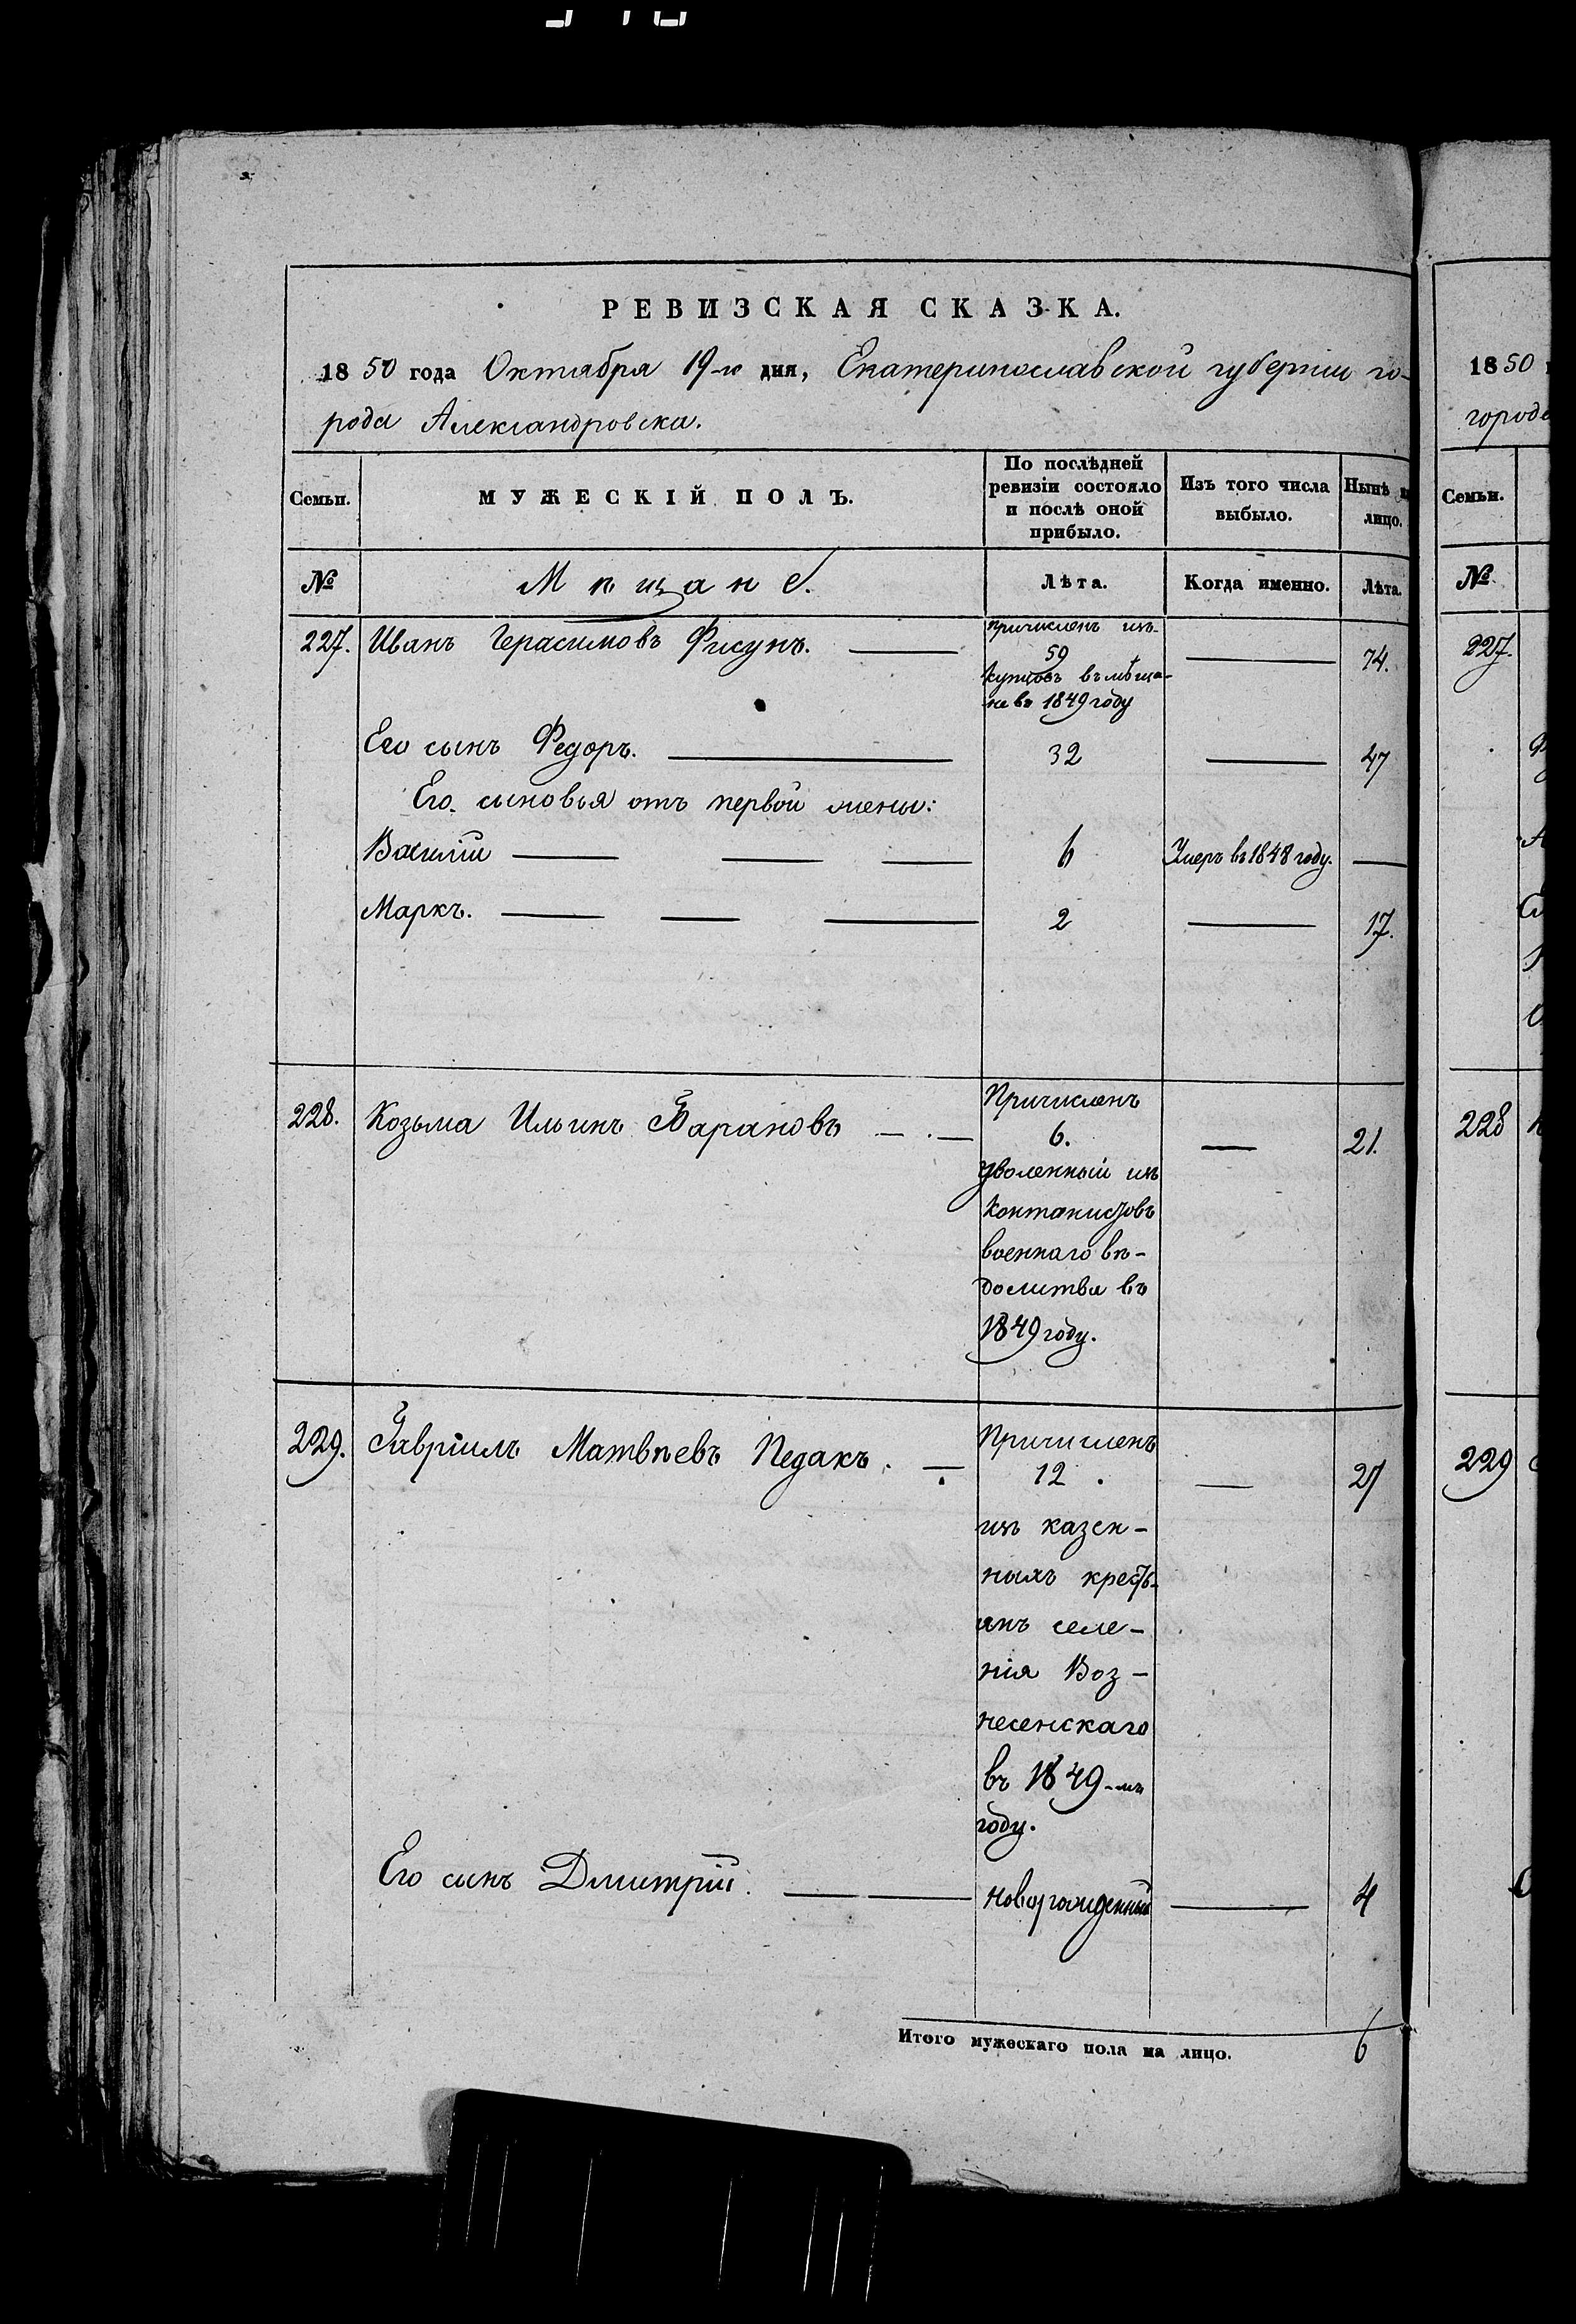 РЕВИЗСКАЯ СКАЗКА.
1850 года Октября 19-го дня, Екатеринославской губернии го-
рода Александровска.
Семьи.
МУЖЕСКІЙ ПОЛЪ.
По послѣдней
ревизіи состояло
и послѣ оной
прибыло.
Изъ того числа
выбыло.
Нынѣ
лицо.
№
Мѣщане.
Лѣта.
Когда именно.
Лѣта.
227. Иванъ Герасимовъ Фисунъ. — 74.
причисленъ изъ
59
купцовъ въ мѣща-
не въ 1849 году
Его сынъ Федоръ. — 32 — 47
Его сыновья отъ первой жены:
Василій — 6 Умеръ въ 1848 году. —
Маркъ. — 2 — 17.
228. Козьма Ильинъ Барановъ — 21.
Причисленъ
6.
уволенный изъ
контонистовъ
военнаго вѣ-
домства въ
1849 году.
229. Гавріилъ Матвѣевъ Педакъ. — 27
Причисленъ
12.
изъ казен-
ныхъ кресть-
янъ селе-
нія Воз-
несенскаго
въ 1849-мъ
году.
Его сынъ Дмитрій. — новорожденный — 4
Итого мужескаго пола на лицо. 6
1850
город
Семьи.
№
227.
228
229